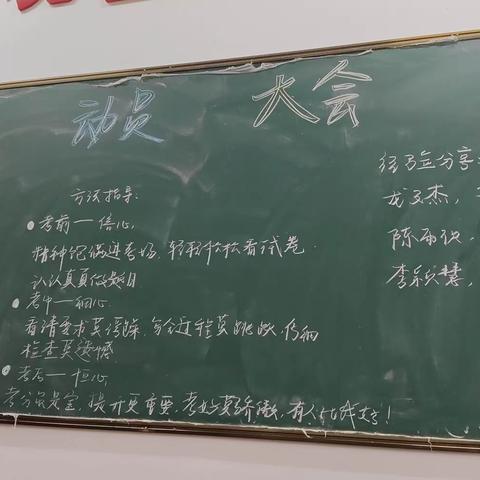 动员 大会
方法指导:
●考前——信心
精神饱满进考场,轻轻松松看试卷.
认认真真做题目
●考中——细心
看清要求莫浮躁,分全过程莫跳跃,仔细
检查莫遗憾
●考后——恒心
考分诚是金,提升更重要,考好莫骄傲,有人比我好!
经验分享:
龙文杰,
陈雨欣,
李颖慧,